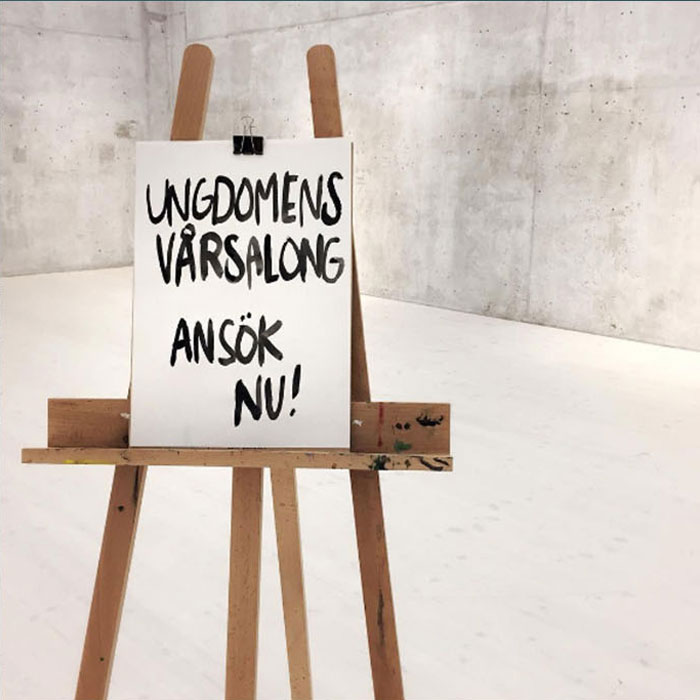 UNGDOMENS
VÅRSALONG
ANSÖK
NU!